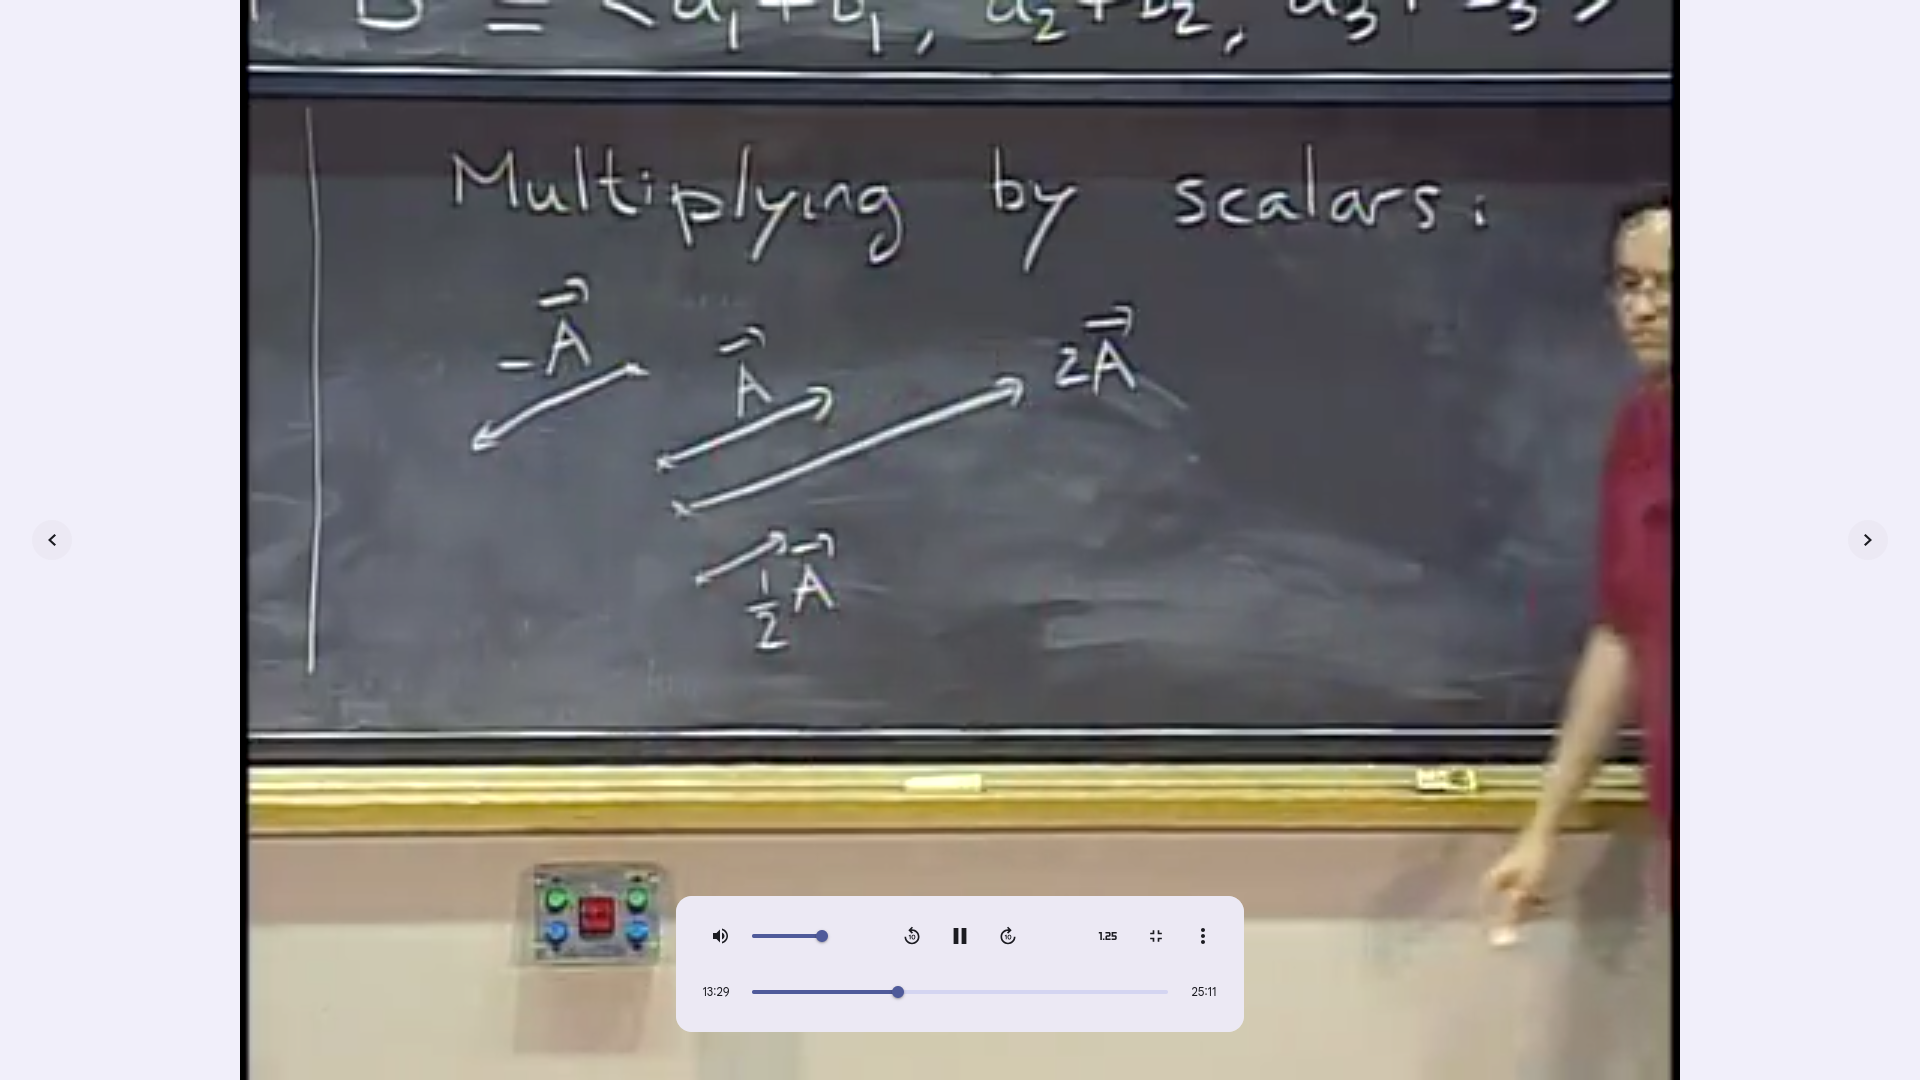 B = < a₁ + b₁ , a₂ + b₂ , a₃ + b₃ >
Multiplying by scalars:
-A⃗
A⃗
2A⃗
½ A⃗
10
10
1.25
13:29
25:11